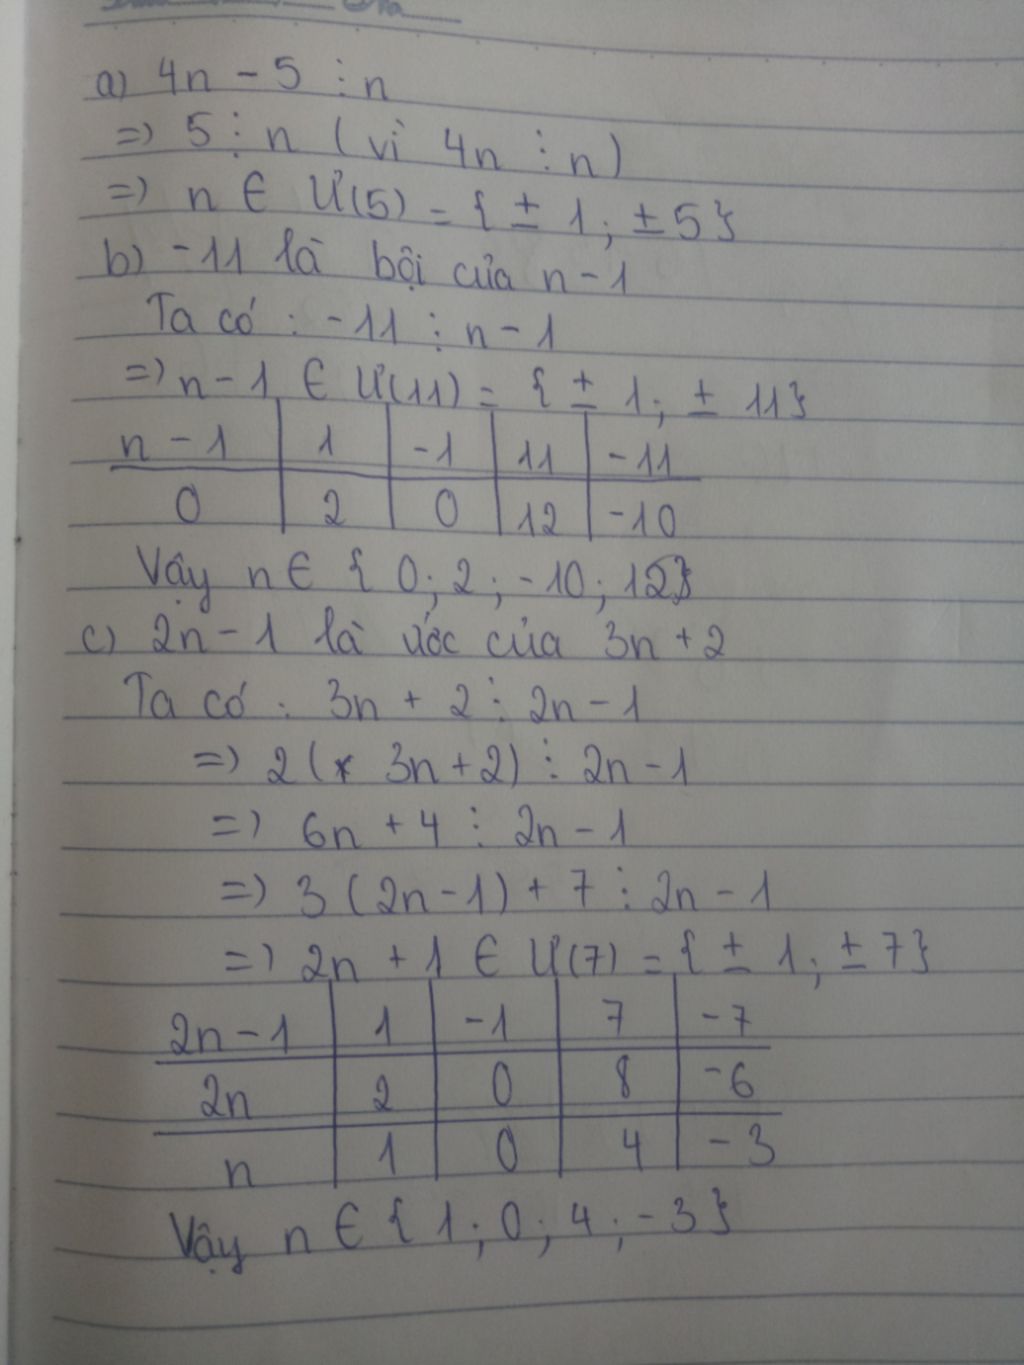 a) 4n - 5 ⋮ n
=) 5 ⋮ n ( vì 4n ⋮ n)
=) n ∈ Ư(5) = { ± 1 ; ± 5}
b) -11 là bội của n - 1
Ta có : -11 ⋮ n - 1
=) n - 1 ∈ Ư(11) = { ± 1 ; ± 11}
n - 1 1 -1 11 -11
0 2 0 12 -10
Vậy n ∈ { 0 ; 2 ; -10 ; 12}
c) 2n - 1 là ước của 3n + 2
Ta có : 3n + 2 ⋮ 2n - 1
=) 2 ( 3n + 2) ⋮ 2n - 1
=) 6n + 4 ⋮ 2n - 1
=) 3 (2n - 1) + 7 ⋮ 2n - 1
=) 2n + 1 ∈ Ư(7) = { ± 1 ; ± 7}
2n - 1 1 -1 7 -7
2n 2 0 8 -6
n 1 0 4 -3
Vậy n ∈ { 1 ; 0 ; 4 ; -3 }